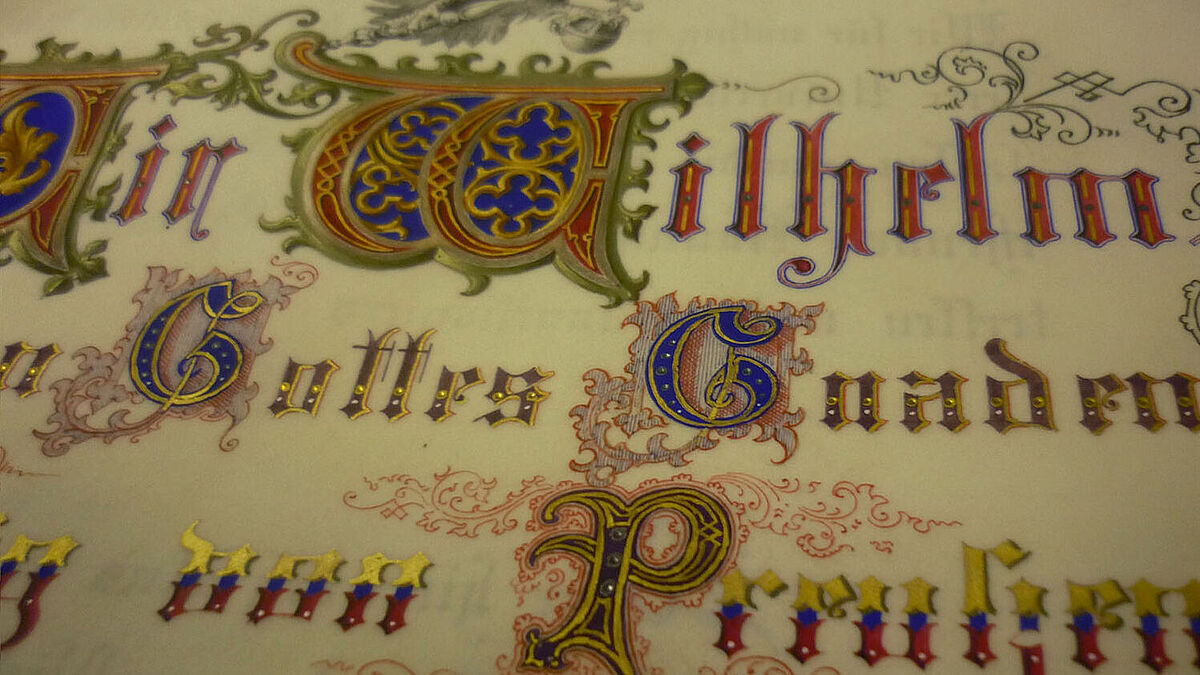 Wir Wilhelm
n Gottes Gnaden
g von Preußen